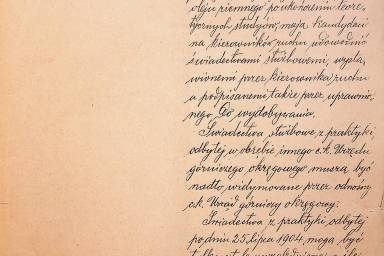 oleju ziemnego po ukończeniu teore-
tycznych studyów, mają kandydaci
na kierowników ruchu udowodnić
świadectwami służbowemi, wysta-
wionemi przez kierownika ruchu
a podpisanemi także przez uprawnio-
nego do wydobywania.
Świadectwa służbowe z praktyki,
odbytej w obrębie innego c.k. Urzędu
górniczego okręgowego muszą być
nadto widymowane przez odnośny
c.k. Urząd górniczy okręgowy.
Świadectwa z praktyki odbytej
po dniu 25 lipca 1904, mogą być
tylko o tyle uwzględnione, o ile